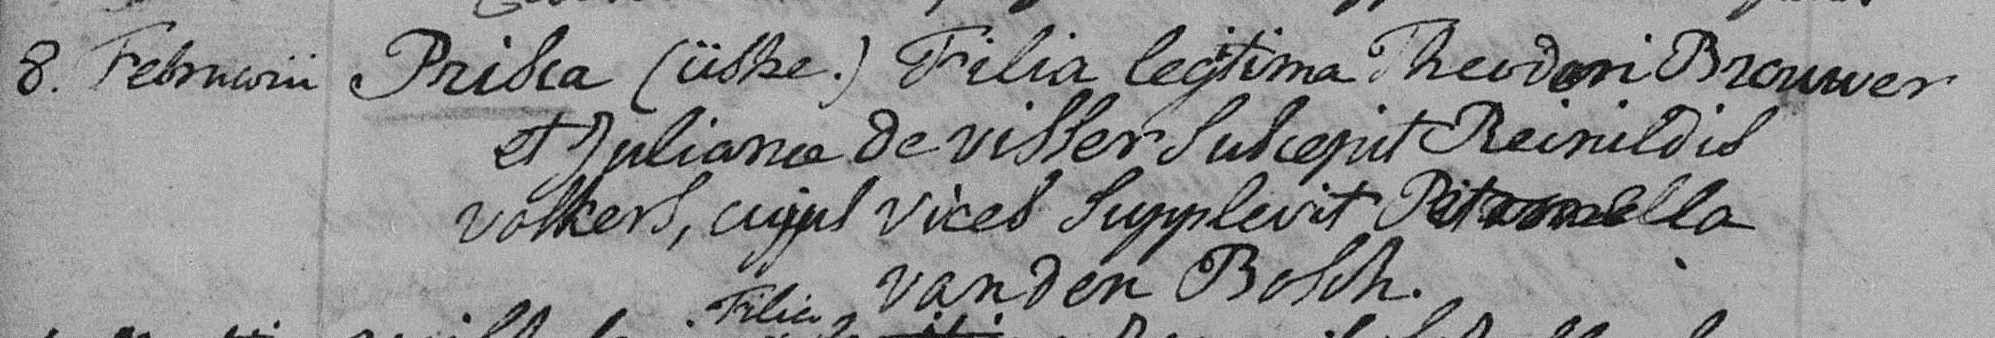 8. Februarii Priska (iiske.) Filia legitima Theodori Brouwer
et Julianæ de visser suscepit Reinildis
volkers, cujus vices supplevit Petronella
van den Bosch.
Filia